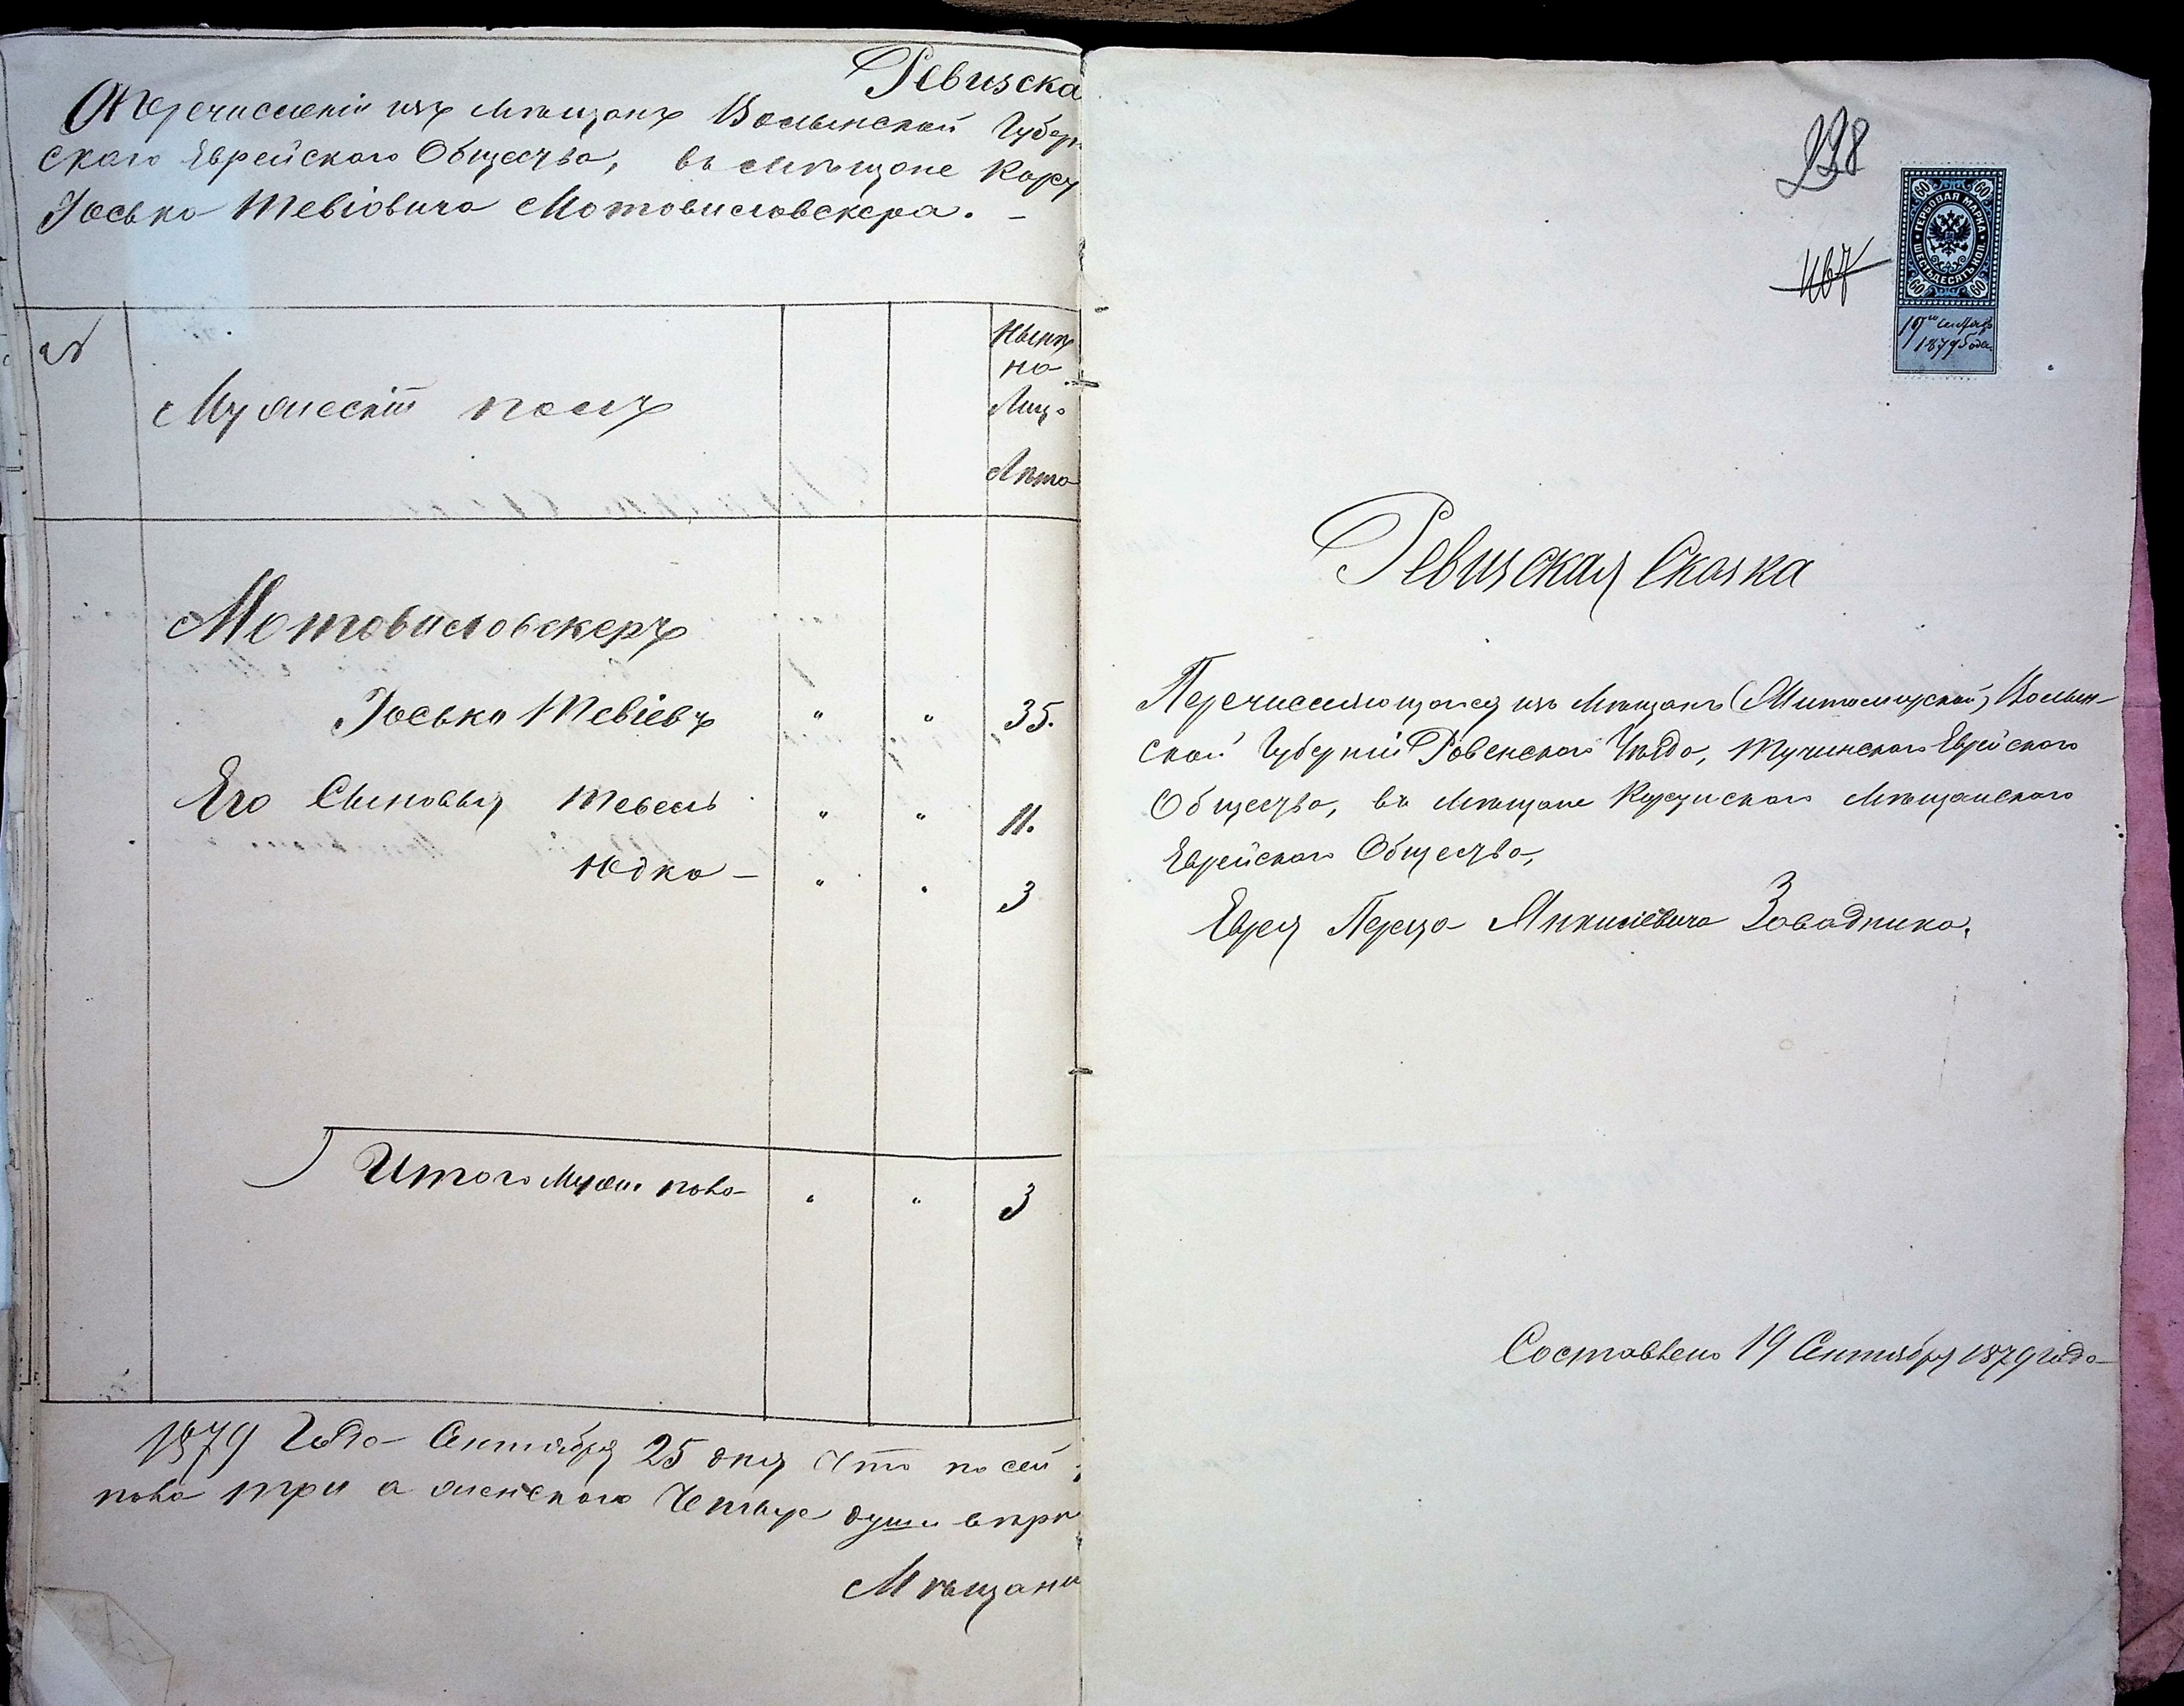 Ревизска
О перечислении изъ мѣщанъ Волынской Губер
скаго Еврейскаго Общества, въ мѣщане Кору
Іосько Тевіовича Мотовиловскера. –
№
Мужескій полъ
Нынѣ
на
Лицо
Лѣта
Мотовиловскеръ
Іосько Тевіевъ " " 35.
Его Сыновья Тевель " " 11.
Юдко – " " 3
Итого Муж. пола " " 3
1879 Года Сентября 25 дня Что по сей
пола три а женскаго Четыре души впро
Мѣщани
228
467
60 60
ГЕРБОВАЯ МАРКА
ШЕСТЬДЕСЯТЪ КОП.
60 60
19го Сентября
1879 Года
Ревизская Сказка
Перечисляющагося изъ Мѣщанъ (Житомирской) Волын-
ской Губерніи Ровенскаго Уѣзда, Тучинскаго Еврейскаго
Общества, въ мѣщане мѣщанскаго
Еврейскаго Общества,
Еврея Переца Завадника.
Составлена 19 Сентября 1879 года